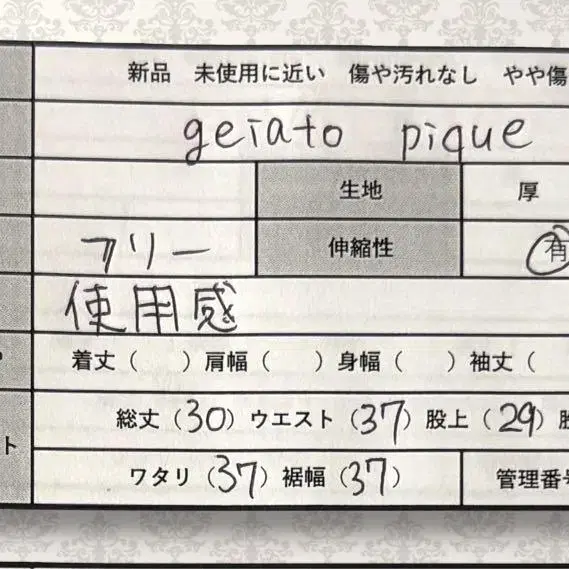 新品 未使用に近い 傷や汚れなし やや傷
geiato pique
生地 厚
フリー 伸縮性 有
使用感
着丈( ) 肩幅( ) 身幅( ) 袖丈(
総丈(30) ウエスト(37) 股上(29) 股
ト
ワタリ(37) 裾幅(37) 管理番号